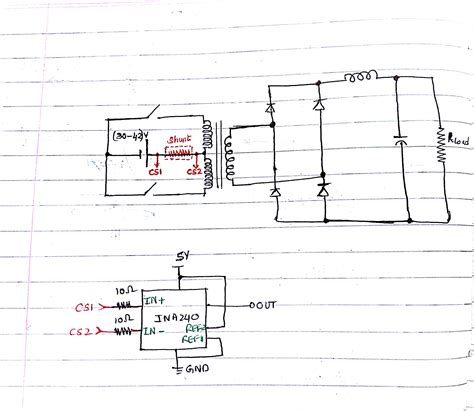 (30-42)V
Shunt
CS1
CS2
RLoad
5V
10Ω
CS1
IN+
INA240
OUT
10Ω
CS2
IN-
REF2
REF1
GND